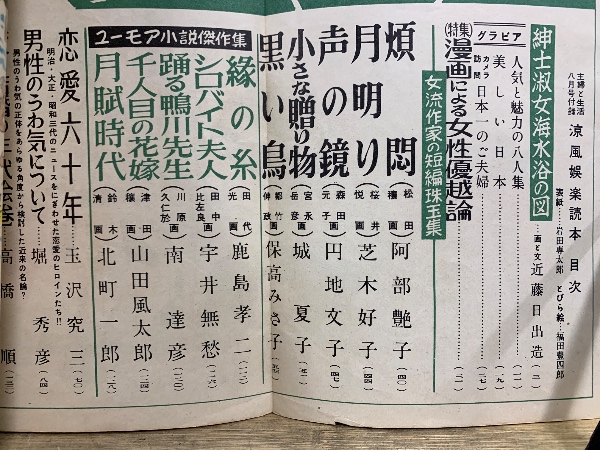 主婦と生活
八月号付録
涼風娯楽読本 目次
表紙……岩田専太郎 とびら絵…福田豊四郎
紳士淑女海水浴の図…画と文 近藤日出造(二)
グラビア
人気と魅力の八人集
美しい日本
カメラ訪問 日本一のご夫婦
(特集)漫画による女性優越論
女流作家の短編珠玉集
煩悶 松田穰画 阿部艶子(四〇)
月明り 桜井悦画 芝木好子(四四)
声の鏡 森田元子画 円地文子(四七)
小さな贈り物 宮永岳彦画 城夏子
黒い鳥 都竹伸政画 保高みさ子
ユーモア小説傑作集
緣の糸 田代光画 鹿島孝二
シロバイト夫人 田中比左良画 宇井無愁
踊る鴨川先生 川原久仁於画 南達彦
千人目の花嫁 津田穰画 山田風太郎
月賦時代 鈴木清画 北町一郎
恋愛六十年……玉沢究三(七〇)
明治・大正・昭和三代のニュースをにぎわせた恋愛のヒロインたち!!
男性のうわ気について……堀秀彦(八四)
男性のうわ気の正体をあらゆる角度から検討した近来の名論?
三代絵巻…高橋順